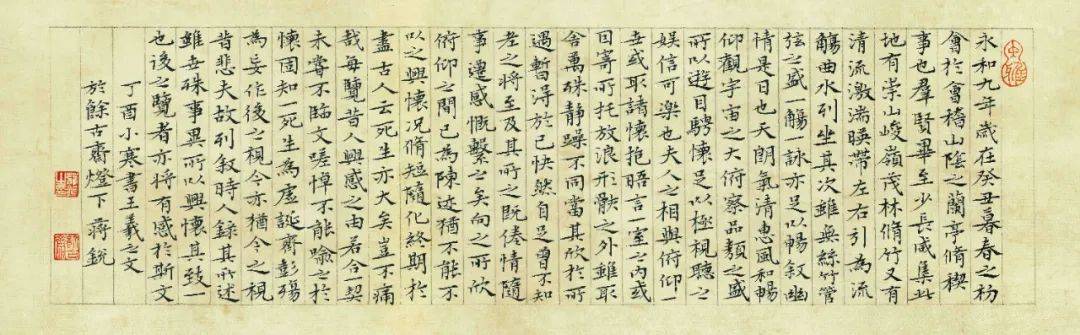 永和九年歲在癸丑暮春之初
會於會稽山陰之蘭亭脩稧
事也羣賢畢至少長咸集此
地有崇山峻嶺茂林脩竹又有
清流激湍暎帶左右引為流
觴曲水列坐其次雖無絲竹管
弦之盛一觴一詠亦足以暢叙幽
情是日也天朗氣清惠風和暢
仰觀宇宙之大俯察品類之盛
所以遊目騁懷足以極視聽之
娱信可樂也夫人之相與俯仰一
世或取諸懷抱晤言一室之內或
因寄所托放浪形骸之外雖取
舍萬殊靜躁不同當其欣於所
遇暫得於己快然自足曾不知
老之將至及其所之既倦情隨
事遷感慨繫之矣向之所欣
俯仰之間已為陳迹猶不能不
以之興懷况脩短隨化終期於
盡古人云死生亦大矣豈不痛
哉每覽昔人興感之由若合一契
未嘗不臨文嗟悼不能喻之於
懷固知一死生為虛誕齊彭殤
為妄作後之視今亦猶今之視
昔悲夫故列叙時人錄其所述
雖世殊事異所以興懷其致一
也後之覽者亦將有感於斯文
丁酉小寒書王羲之文
於餘古齋燈下蔣銳